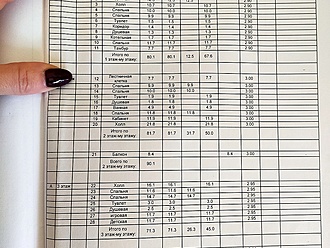 3 Холл 10.7 10.7 10.7 2.90
4 Спальня 10.7 10.7 10.7 2.90
5 Спальня 9.9 9.9 9.9 2.90
6 Туалет 1.9 1.9 1.9 2.90
7 Коридор 2.90
8 Душевая 1.3 1.3 1.3 2.90
9 Котельная 2.90
10 Спальня 2.90
11 Тамбур 7.7 7.7 7.7 2.90
Итого по 1 этаж-му этажу: 80.1 80.1 12.5 67.6
12 Лестничная клетка 7.7 7.7 7.7 3.00
13 Спальня
14 Спальня 10.0 10.0 10.0
15 Туалет 1.9 1.9 1.9 3.00
16 Душевая 1.8 1.8 1.8 3.00
17 Ванная 4.9 4.9 4.9 3.00
18 Спальня 3.00
19 Кабинет 3.00
20 Холл 21.8 21.8 21.8 3.00
Итого по 2 этаж-му этажу: 81.7 81.7 31.7 50.0
21 Балкон 8.4 8.4 3.00
Всего по 2 этаж-му этажу: 90.1
А 3 этаж 22 Холл 16.1 16.1 16.1 2.95
23 Спальня 11.6 11.6 11.6 2.95
24 Спальня 14.7 14.7 14.7 2.95
25 Туалет 3.0 3.0 3.0 2.95
26 Душевая 2.5 2.5 2.5 2.95
27 игровая 11.7 11.7 11.7 2.95
28 Детская 2.95
Итого по 3 этаж-му этажу: 71.3 71.3 26.3 45.0